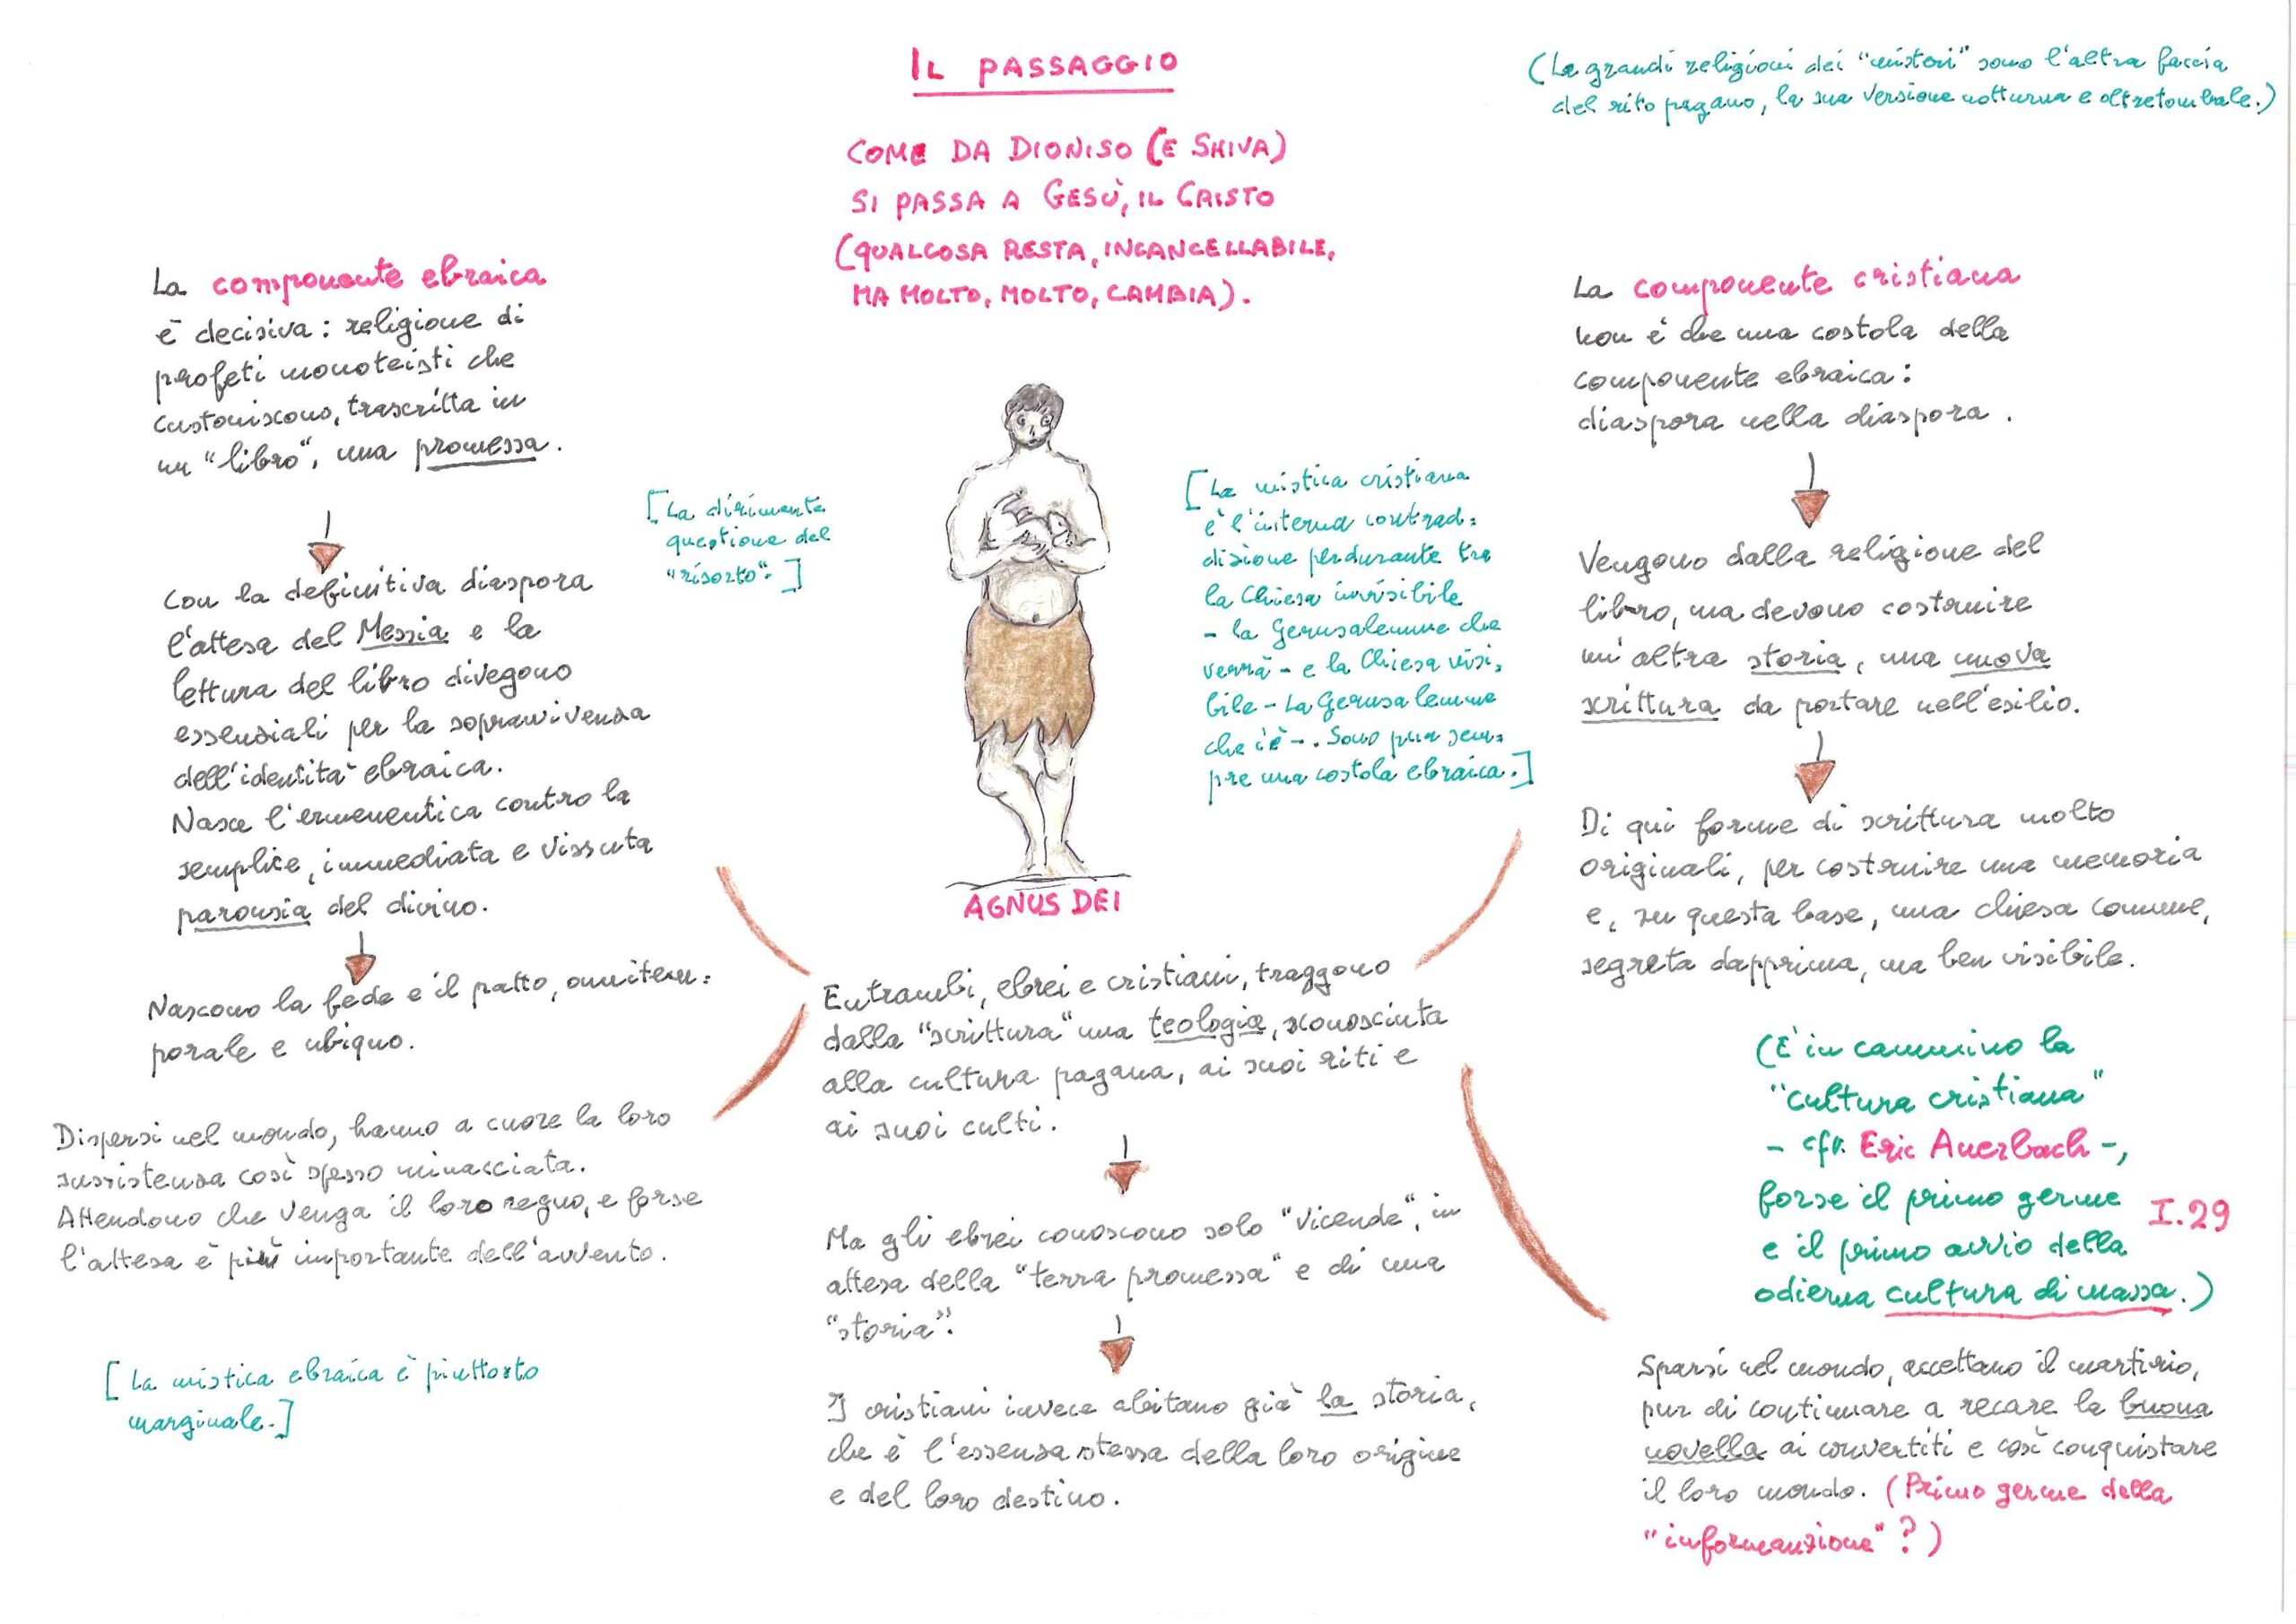 IL PASSAGGIO
COME DA DIONISO (E SHIVA)
SI PASSA A GESÙ, IL CRISTO
(QUALCOSA RESTA, INCANCELLABILE,
MA MOLTO, MOLTO, CAMBIA).
(Le grandi religioni dei "misteri" sono l'altra faccia
del rito pagano, la sua versione notturna e oltretombale.)
La componente ebraica
è decisiva: religione di
profeti monoteisti che
custoniscono, trascritta in
un "libro", una promessa.
Con la definitiva diaspora
l'attesa del Messia e la
lettura del libro divegono
essenziali per la sopravvivenza
dell'identità ebraica.
Nasce l'ermeneutica contro la
semplice, immediata e vissuta
parousia del divino.
Nascono la fede e il patto, omnitem=
porale e ubiquo.
Dispersi nel mondo, hanno a cuore la loro
sussistenza così spesso minacciata.
Attendono che venga il loro regno, e forse
l'attesa è più importante dell'avvento.
[La mistica ebraica è piuttosto
marginale.]
[La dirimente
questione del
"risorto".]
AGNUS DEI
[La mistica cristiana
è l'interna contrad=
dizione perdurante tra
la Chiesa invisibile
- la Gerusalemme che
verrà - e la Chiesa visi=
bile - La Gerusalemme
che c'è -. Sono pur sem=
pre una costola ebraica.]
Entrambi, ebrei e cristiani, traggono
dalla "scrittura" una teologia, sconosciuta
alla cultura pagana, ai suoi riti e
ai suoi culti.
Ma gli ebrei conoscono solo "vicende", in
attesa della "terra promessa" e di una
"storia".
I cristiani invece abitano già la storia,
che è l'essenza stessa della loro origine
e del loro destino.
La componente cristiana
non è che una costola della
componente ebraica:
diaspora nella diaspora.
Vengono dalla religione del
libro, ma devono costruire
un'altra storia, una nuova
scrittura da portare nell'esilio.
Di qui forme di scrittura molto
originali, per costruire una memoria
e, su questa base, una chiesa comune,
segreta dapprima, ma ben visibile.
(È in cammino la
"cultura cristiana"
- cfr. Eric Auerbach -,
forse il primo germe
e il primo avvio della
odierna cultura di massa.)
I.29
Sparsi nel mondo, accettano il martirio,
pur di continuare a recare la buona
novella ai convertiti e così conquistare
il loro mondo. (Primo germe della
"informazione"?)